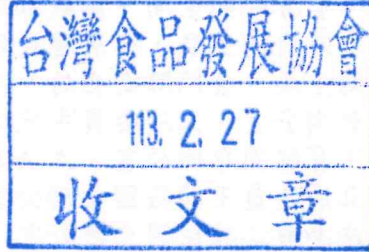 台灣食品發展協會
113. 2. 27
收文章